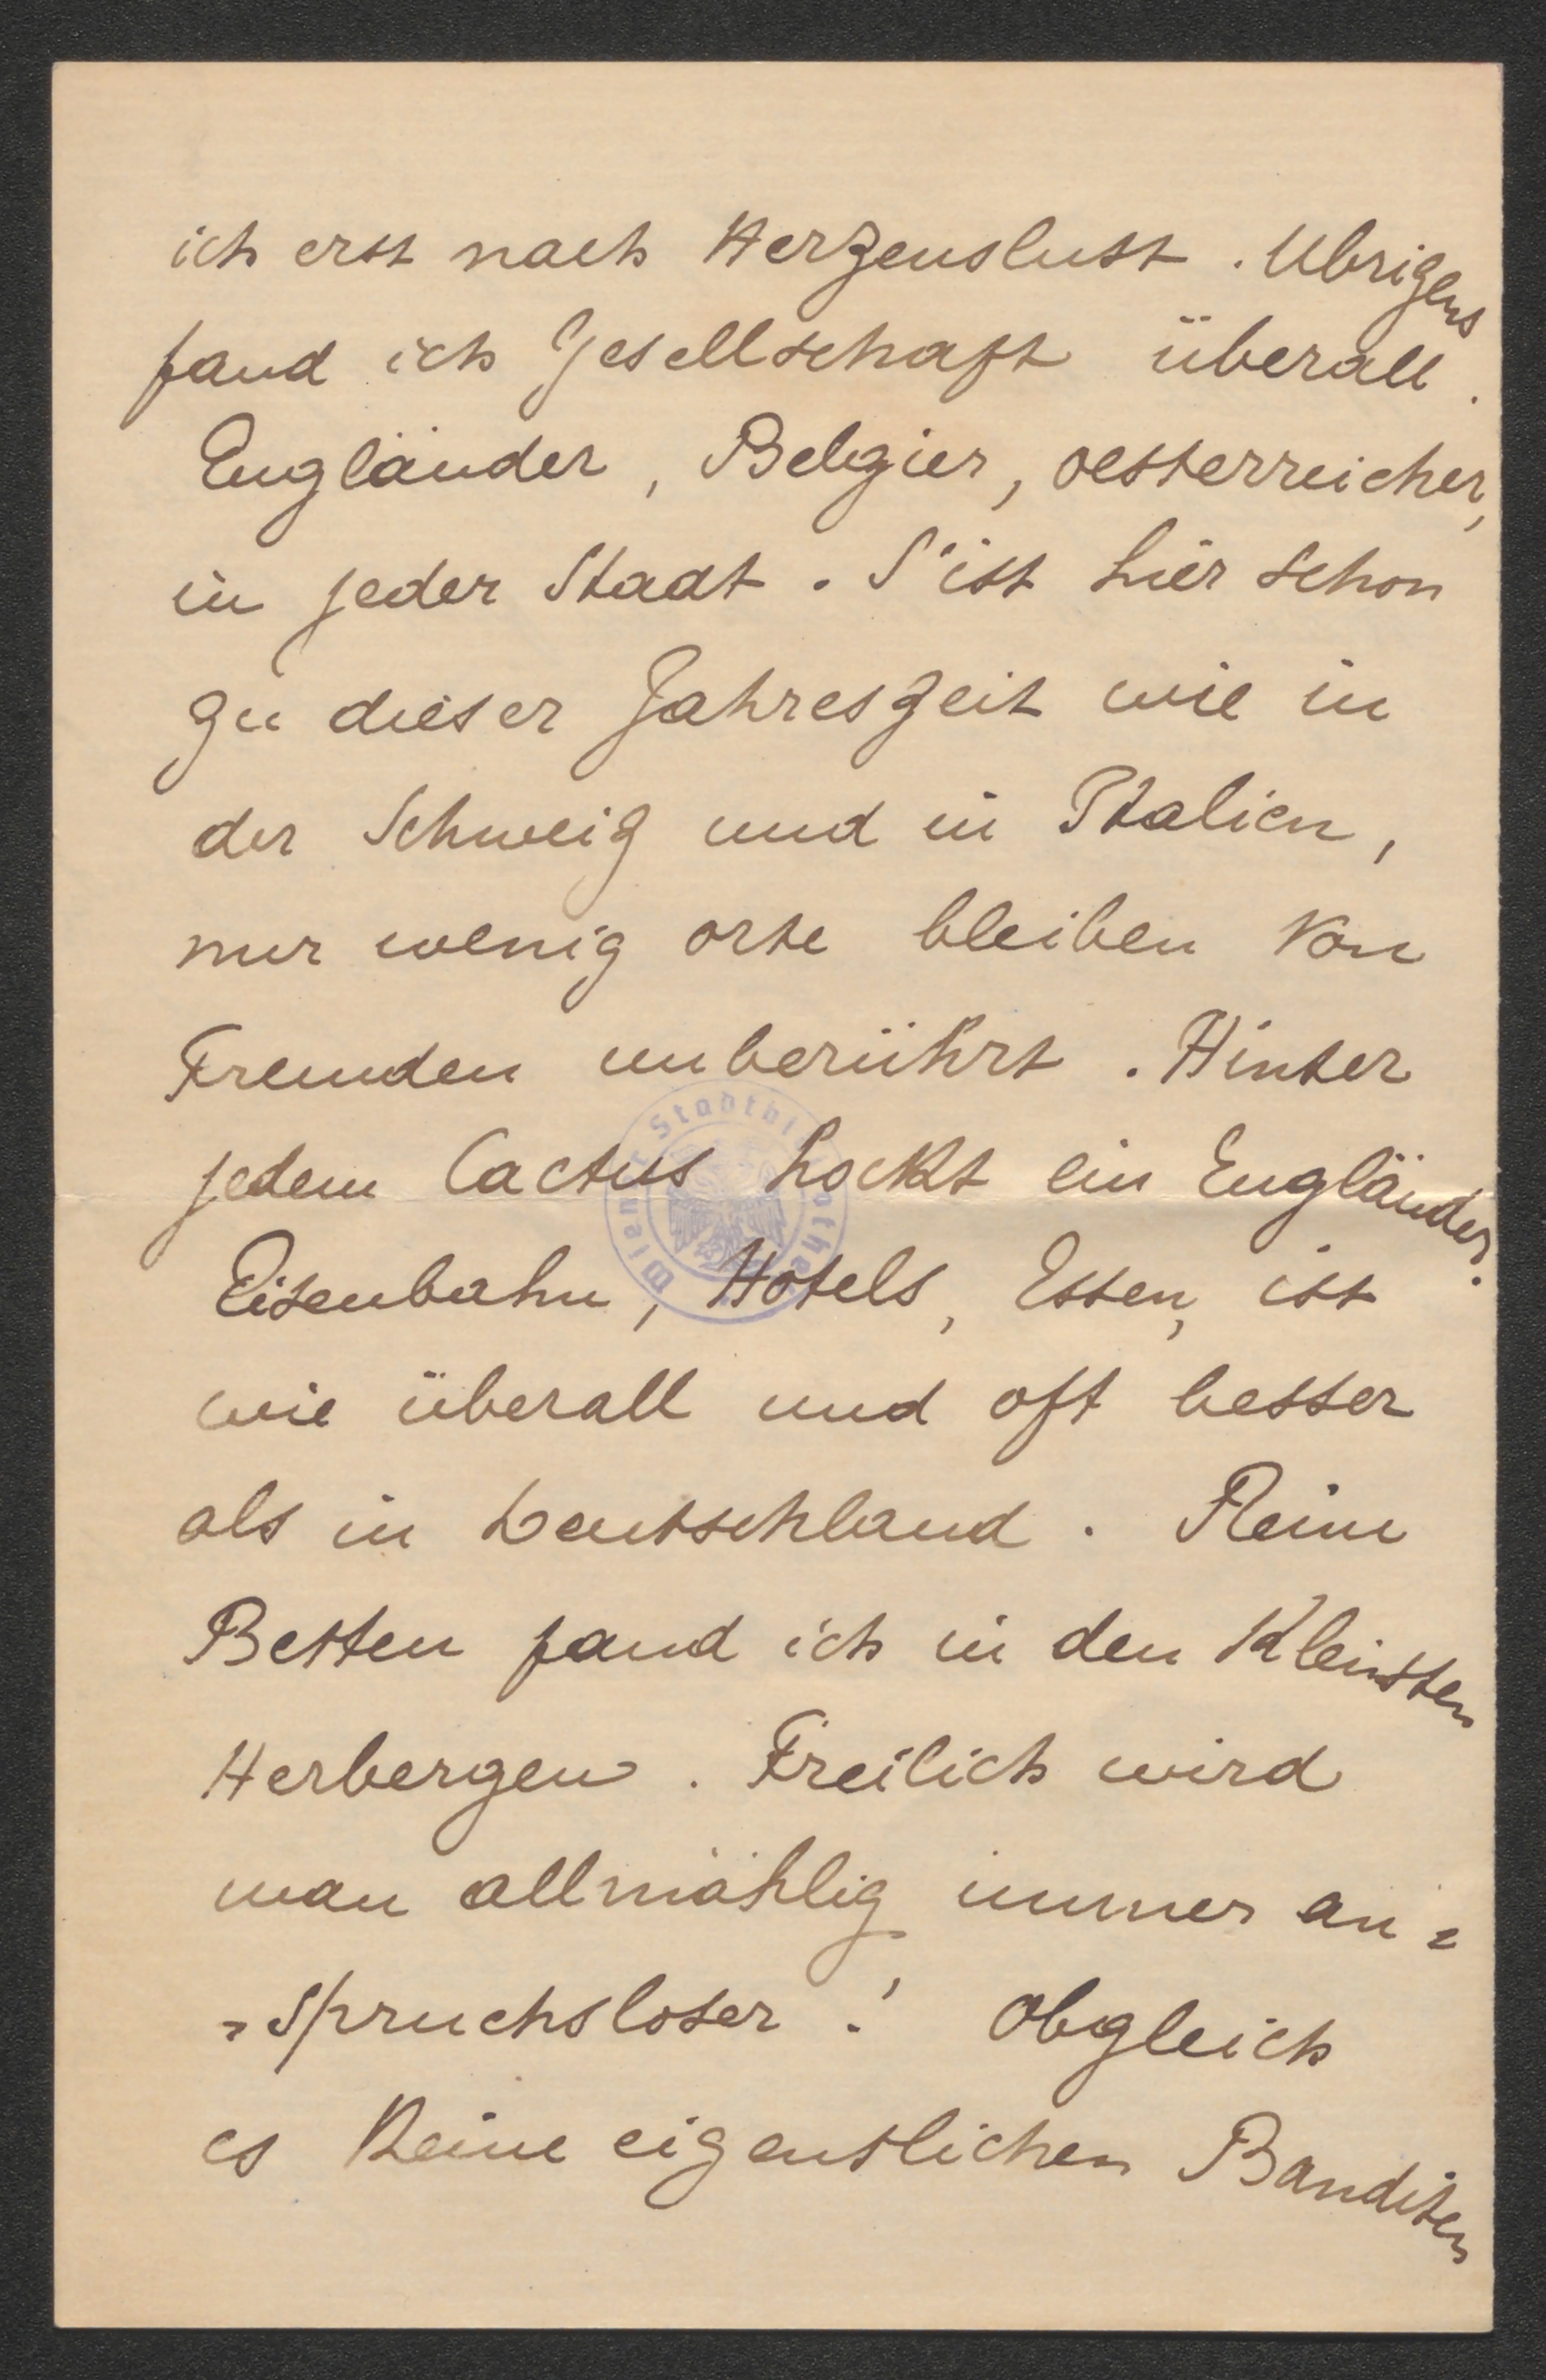 ich erst nach Herzenslust . Ubrigens
fand ich Gesellschaft überall .
Engländer , Belgier , oesterreicher,
in jeder Stadt . S'ist hier schon
zu dieser Jahreszeit wie in
der Schweiz und in Italien ,
nur wenig orte bleiben Von
Fremden unberührt . Hinter
jedem Cactus hockt ein Engländer.
Eisenbahn , Hotels , Essen, ist
wie überall und oft besser
als in Deutschland . Reine
Betten fand ich in den Kleinsten
Herbergen . Freilich wird
man allmählig immer an=
=spruchsloser ! Obgleich
es Keine eigentlichen Banditen